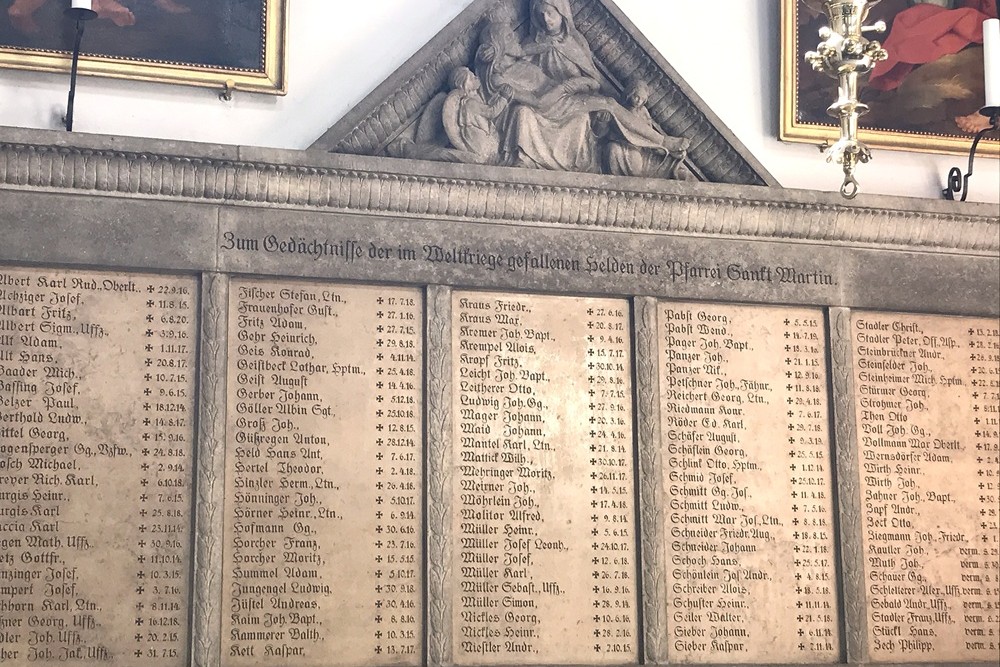 Zum Gedächtnisse der im Weltkriege gefallenen Helden der Pfarrei Sankt Martin.
Albert Karl Rud., Oberlt., ✠ 22.9.16.
Achziger Josef, ✠ 11.8.15.
Albart Fritz, ✠ 6.8.20.
Albert Sigm., Uffz. ✠ 3.9.16.
Alt Adam, ✠ 1.11.17.
Alt Hans, ✠ 20.8.17.
Baader Mich., ✠ 10.7.15.
Josef, ✠ 9.6.15.
Belzer Paul, ✠ 18.12.14.
Berthold Ludw., ✠ 14.8.17.
Georg, ✠ 15.9.16.
Gg., Vzfw., ✠ 24.8.18.
Michael, ✠ 2.9.14.
Rich. Karl, ✠ 6.10.18.
Heinr., ✠ 7.6.15.
Karl ✠ 25.8.18.
Karl ✠ 23.11.14.
Math., Uffz. ✠ 30.9.16.
Gottfr., ✠ 11.10.14.
Josef, ✠ 10.3.15.
Josef, ✠ 3.7.16.
Karl, Ltn., ✠ 8.11.14.
Georg, Uffz. ✠ 16.12.18.
Joh. Uffz., ✠ 20.2.15.
Joh. Jak., Uffz., ✠ 31.7.15.
Fischer Stefan, Ltn., ✠ 17.7.18.
Frauenhofer Gust., ✠ 27.1.16.
Fritz Adam, ✠ 27.7.15.
Gehr Heinrich, ✠ 29.8.18.
Geis Konrad, ✠ 4.11.14.
Geistbeck Lothar, Hptm., ✠ 25.4.18.
Geist August ✠ 14.4.16.
Gerber Johann, ✠ 5.12.18.
Göller Albin Sgt., ✠ 25.10.18.
Groß Joh., ✠ 12.8.15.
Güßregen Anton, ✠ 28.12.14.
Held Hans Ant., ✠ 7.6.17.
Hertel Theodor, ✠ 2.4.18.
Hinzler Herm., Ltn., ✠ 26.4.18.
Hönninger Joh., ✠ 5.10.17.
Hörner Heinr., Ltn., ✠ 6.9.14.
Hofmann Gg., ✠ 30.6.16.
Horcher Franz, ✠ 23.7.16.
Horcher Moritz, ✠ 15.5.15.
Hummel Adam, ✠ 5.10.17.
Jungengel Ludwig, ✠ 30.9.18.
Jüstel Andreas, ✠ 30.4.16.
Kaim Joh. Bapt., ✠ 8.8.10.
Kammerer Balth., ✠ 10.3.15.
Kett Kaspar, ✠ 13.7.17.
Kraus Friedr., ✠ 27.6.16.
Kraus Max, ✠ 20.8.17.
Kremer Joh. Bapt., ✠ 9.4.16.
Krempel Alois, ✠ 15.7.17.
Kropf Fritz, ✠ 30.10.14.
Leicht Joh. Bapt., ✠ 29.8.16.
Leitherer Otto, ✠ 7.7.15.
Ludwig Joh. Gg., ✠ 27.9.16.
Mager Johann, ✠ 20.3.16.
Maid Johann, ✠ 24.4.16.
Mantel Karl, Ltn., ✠ 21.8.14.
Mattick Wilh., ✠ 30.10.17.
Mehringer Moritz, ✠ 26.11.17.
Meixner Joh., ✠ 14.5.15.
Möhrlein Joh., ✠ 17.4.18.
Molitor Alfred, ✠ 9.8.14.
Müller Heinr., ✠ 5.6.15.
Müller Josef Leonh., ✠ 24.10.17.
Müller Josef, ✠ 12.6.18.
Müller Karl, ✠ 26.7.18.
Müller Sebast., Uffz., ✠ 16.9.16.
Müller Simon, ✠ 28.9.14.
Nickles Georg, ✠ 10.6.16.
Nickles Heinr., ✠ 28.2.16.
Niestler Andr., ✠ 2.10.15.
Pabst Georg, ✠ 5.5.15.
Pabst Wend., ✠ 14.7.19.
Pager Joh. Bapt., ✠ 18.3.16.
Panzer Joh., ✠ 21.1.15.
Panzer Nik., ✠ 12.9.16.
Petschner Joh., Fähnr., ✠ 11.8.18.
Reichert Georg, Ltn., ✠ 29.4.18.
Riedmann Konr. ✠ 7.6.17.
Röder Ed. Karl, ✠ 29.7.18.
Schäfer August, ✠ 9.3.19.
Schäflein Georg, ✠ 25.5.15.
Schlink Otto, Hptm., ✠ 1.12.14.
Schmid Josef, ✠ 25.12.17.
Schmitt Gg. Jos., ✠ 11.4.18.
Schmitt Ludw., ✠ 7.5.16.
Schmitt Max Jos., Ltn., ✠ 8.8.18.
Schneider Friedr. Aug., ✠ 18.8.15.
Schneider Johann ✠ 22.1.18.
Schoch Hans, ✠ 25.5.17.
Schönlein Jas. Andr., ✠ 4.8.15.
Schreiber Alois, ✠ 18.5.18.
Schuster Heinr., ✠ 11.11.14.
Seiler Walter, ✠ 21.5.18.
Sieber Johann, ✠ 6.11.14.
Sieber Kaspar, ✠ 2.11.14.
Stadler Christ., ✠
Stadler Peter, Off. Asp., ✠
Steinbrückner Andr. ✠
Steinfelder Joh., ✠
Steinheimer Mich. Hptm., ✠
Stürmer Georg, ✠
Strohmer Joh., ✠
Then Otto ✠
Voll Joh. Gg., ✠
Vollmann Max Oberlt., ✠
Wernsdörfer Adam, ✠
Wirth Heinr., ✠
Wirth Joh., ✠
Zahner Joh. Bapt., ✠
Zapf Andr., ✠
Zeck Otto, ✠
Ziegmann Joh. Friedr., ✠
Kauller Joh., verm.
Muth Joh., verm.
Schauer Gg., verm.
Schleierer Alex. Uffz., verm.
Sebald Andr. Uffz., verm.
Stadler Franz, Uffz., verm.
Stückl Hans, verm.
Zech Philipp, verm.